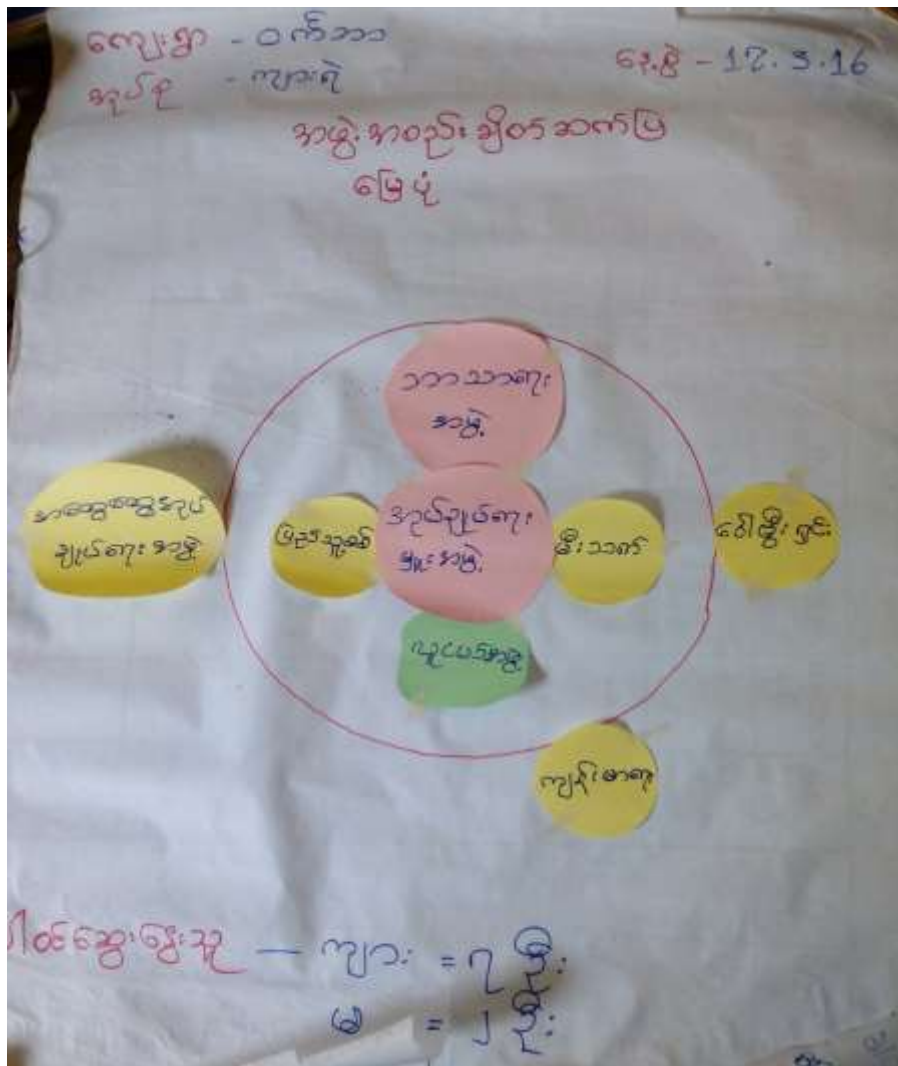 ကျေးရွာ - ဝက်ဘာ
နေ့စွဲ - 17.3.16
အုပ်စု - ကျားရဲ
အဖွဲ့အစည်းချိတ်ဆက်ပြ
မြေပုံ
ဘာသာရေး
အဖွဲ့
အထွေထွေအုပ်
ချုပ်ရေးအဖွဲ့
ပြည်သူ့စစ်
အုပ်ချုပ်ရေး
မှူးအဖွဲ့
မီးသတ်
လူငယ်အဖွဲ့
ကျန်းမာရေး
ပါဝင်ဆွေးနွေးသူ - ကျား = ၇ ဦး
မ = ၂ ဦး